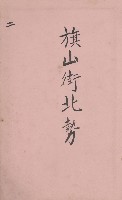 旗山街北勢
二